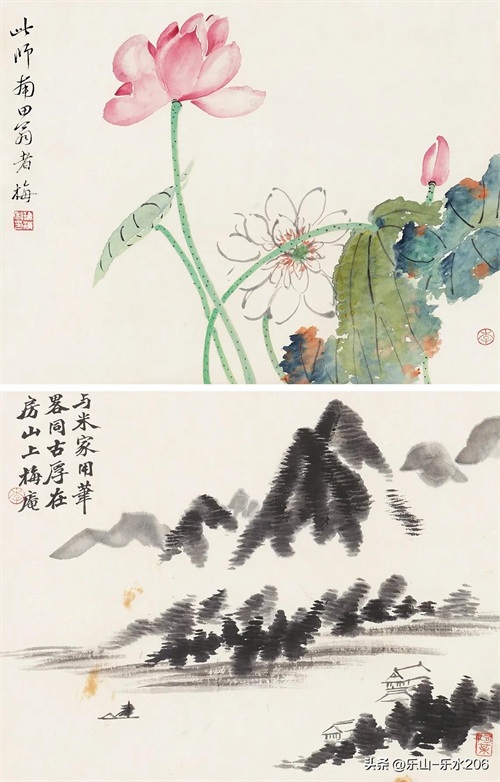 此师南田翁者梅
与米家用笔
略同古厚在
房山上梅庵
头条@乐山-乐水206